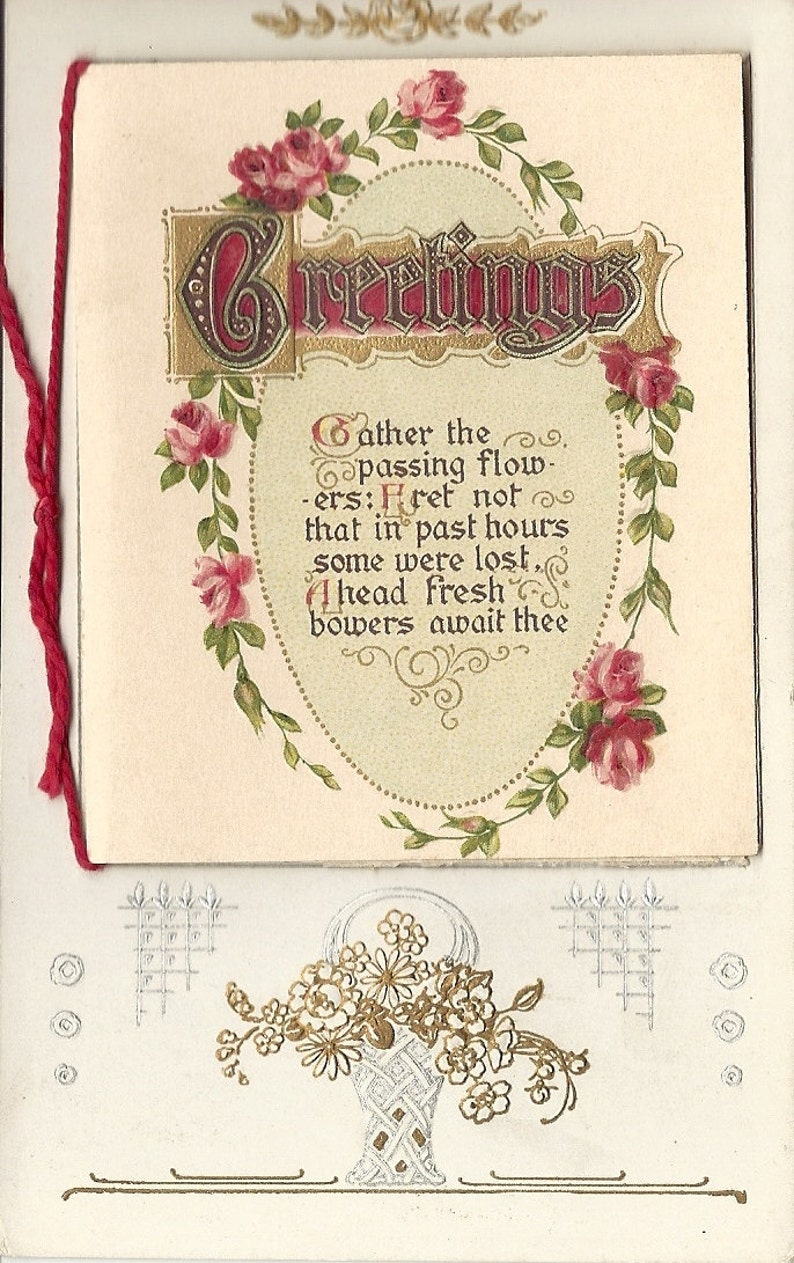 Greetings
Gather the
passing flow-
-ers: Fret not
that in past hours
some were lost,
Ahead fresh
bowers await thee